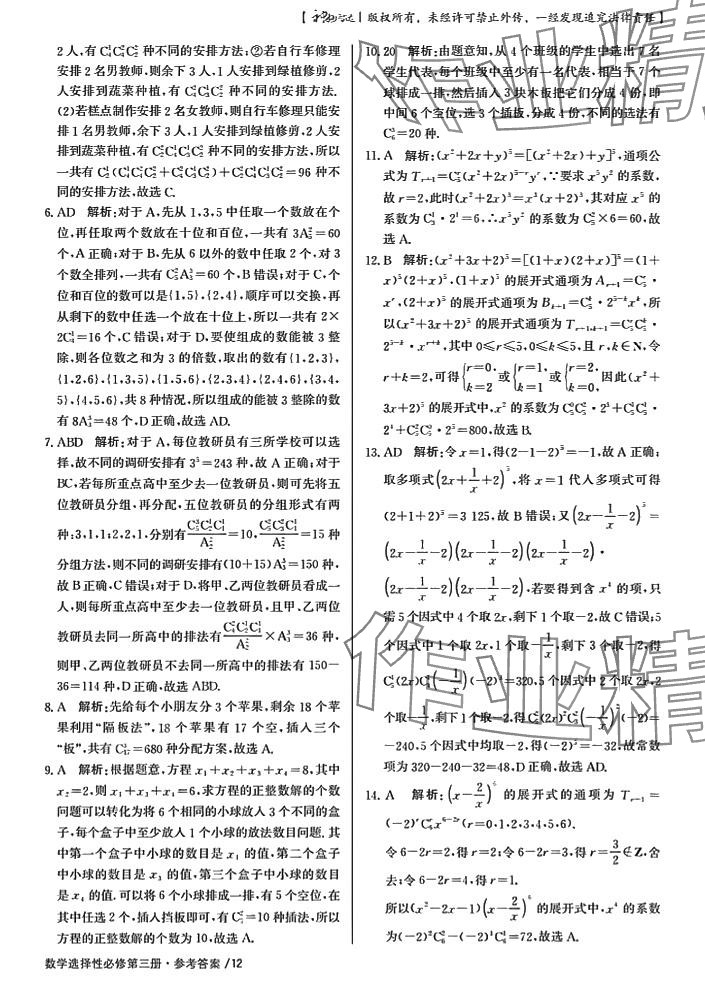 版权所有,未经许可禁止外传,一经发现追究法律责任
2人,有C¹₄C¹₃C²₂种不同的安排方法;②若自行车修理
安排2名男教师,则余下3人,1人安排到绿植修剪,2
人安排到蔬菜种植,有 种不同的安排方法.
(2)若糕点制作安排2名女教师,则自行车修理只能安
排1名男教师,余下3人,1人安排到绿植修剪,2人安
排到蔬菜种植,有 种不同的安排方法,所以
一共有 =96种不
同的安排方法,故选C.
6. AD 解析:对于A,先从1,3,5中任取一个数放在个
位,再任取两个数放在十位和百位,一共有3A²₅=60
个,A正确;对于B,先从6以外的数中任取2个,对3
个数全排列,一共有C²₅A³₃=60个,B错误;对于C,个
位和百位的数可以是{1,5},{2,4},顺序可以交换,再
从剩下的数中任选一个放在十位上,所以一共有2×
2C¹₄=16个,C错误;对于D,要使组成的数能被3整
除,则各位数之和为3的倍数,取出的数有{1,2,3},
{1,2,6},{1,3,5},{1,5,6},{2,3,4},{2,4,6},{3,4,
5},{4,5,6},共8种情况,所以组成的能被3整除的数
有8A³₃=48个,D正确,故选AD.
7. ABD 解析:对于A,每位教研员有三所学校可以选
择,故不同的调研安排有3⁵=243种,故A正确;对于
BC,若每所重点高中至少去一位教研员,则可先将五
位教研员分组,再分配,五位教研员的分组形式有两
种:3,1,1;2,2,1,分别有C³₅C¹₂C¹₁/A²₂=10,C²₅C²₃C¹₁/A²₂=15种
分组方法,则不同的调研安排有(10+15)A³₃=150种,
故B正确,C错误;对于D,将甲、乙两位教研员看成一
人,则每所重点高中至少去一位教研员,且甲、乙两位
教研员去同一所高中的排法有C²₄C¹₂C¹₁/A²₂×A³₃=36种,
则甲、乙两位教研员不去同一所高中的排法有150-
36=114种,D正确,故选ABD.
8. A 解析:先给每个小朋友分3个苹果,剩余18个苹
果利用“隔板法”,18个苹果有17个空,插入三个
“板”,共有C³₁₇=680种分配方案,故选A.
9. A 解析:根据题意,方程x₁+x₂+x₃+x₄=8,其中
x₂=2,则x₁+x₃+x₄=6,求方程的正整数解的个数
问题可以转化为将6个相同的小球放入3个不同的盒
子,每个盒子中至少放入1个小球的放法数目问题.其
中第一个盒子中小球的数目是x₁的值,第二个盒子
中小球的数目是x₃的值,第三个盒子中小球的数目
是x₄的值.可以将6个小球排成一排,有5个空位,在
其中任选2个,插入挡板即可,有C²₅=10种插法,所以
方程的正整数解的个数为10,故选A.
数学选择性必修第三册·参考答案/12
10. 20 解析:由题意知,从4个班级的学生中选出7名
学生代表,每个班级中至少有一名代表,相当于7个
球排成一排,然后插入3块木板把它们分成4份,即
中间6个空位,选3个插板,分成4份,不同的选法有
C³₆=20种.
11. A 解析:(x²+2x+y)⁵=[(x²+2x)+y]⁵,通项公
式为Tᵣ₊₁=Cʳ₅(x²+2x)⁵⁻ʳyʳ,∵要求x⁵y²的系数,
故r=2,此时(x²+2x)³=x³(x+2)³,其对应x⁵的
系数为C¹₃·2¹=6,∴x⁵y²的系数为C²₅×6=60,故
选A.
12. B 解析:(x²+3x+2)⁵=[(1+x)(2+x)]⁵=(1+
x)⁵(2+x)⁵,(1+x)⁵的展开式通项为Aᵣ₊₁=Cʳ₅·
xʳ,(2+x)⁵的展开式通项为Bₖ₊₁=Cᵏ₅·2⁵⁻ᵏxᵏ,所
以(x²+3x+2)⁵的展开式通项为Tᵣ₊₁,ₖ₊₁=Cʳ₅Cᵏ₅·
2⁵⁻ᵏ·xʳ⁺ᵏ,其中0≤r≤5,0≤k≤5,且r,k∈N,令
r+k=2,可得{r=0,k=2或{r=1,k=1或{r=2,k=0,因此(x²+
3x+2)⁵的展开式中,x²的系数为C⁰₅C²₅·2³+C¹₅C¹₅·
2⁴+C²₅C⁰₅·2⁵=800,故选B.
13. AD 解析:令x=1,得(2-1-2)⁵=-1,故A正确;
取多项式(2x+1/x+2)⁵,将x=1代入多项式可得
(2+1+2)⁵=3 125,故B错误;又(2x-1/x-2)⁵=
(2x-1/x-2)(2x-1/x-2)(2x-1/x-2)·
(2x-1/x-2)(2x-1/x-2),若要得到含x⁴的项,只
需5个因式中4个取2x,剩下1个取-2,故C错误;5
个因式中1个取2x,1个取-1/x,剩下3个取-2,得
C¹₅(2x)C¹₄(-1/x)(-2)³=320,5个因式中2个取2x,2
个取-1/x,剩下1个取-2,得C²₅(2x)²C²₃(-1/x)²(-2)=
-240,5个因式中均取-2,得(-2)⁵=-32,故常数
项为320-240-32=48,D正确,故选AD.
14. A 解析:(x-2/x)⁶的展开式的通项为Tᵣ₊₁=
(-2)ʳCʳ₆x⁶⁻²ʳ(r=0,1,2,3,4,5,6).
令6-2r=2,得r=2;令6-2r=3,得r=3/2∉Z,舍
去;令6-2r=4,得r=1.
所以(x²-2x-1)(x-2/x)⁶的展开式中,x⁴的系数
为(-2)²C²₆-(-2)¹C¹₆=72,故选A.
作业精
作业精